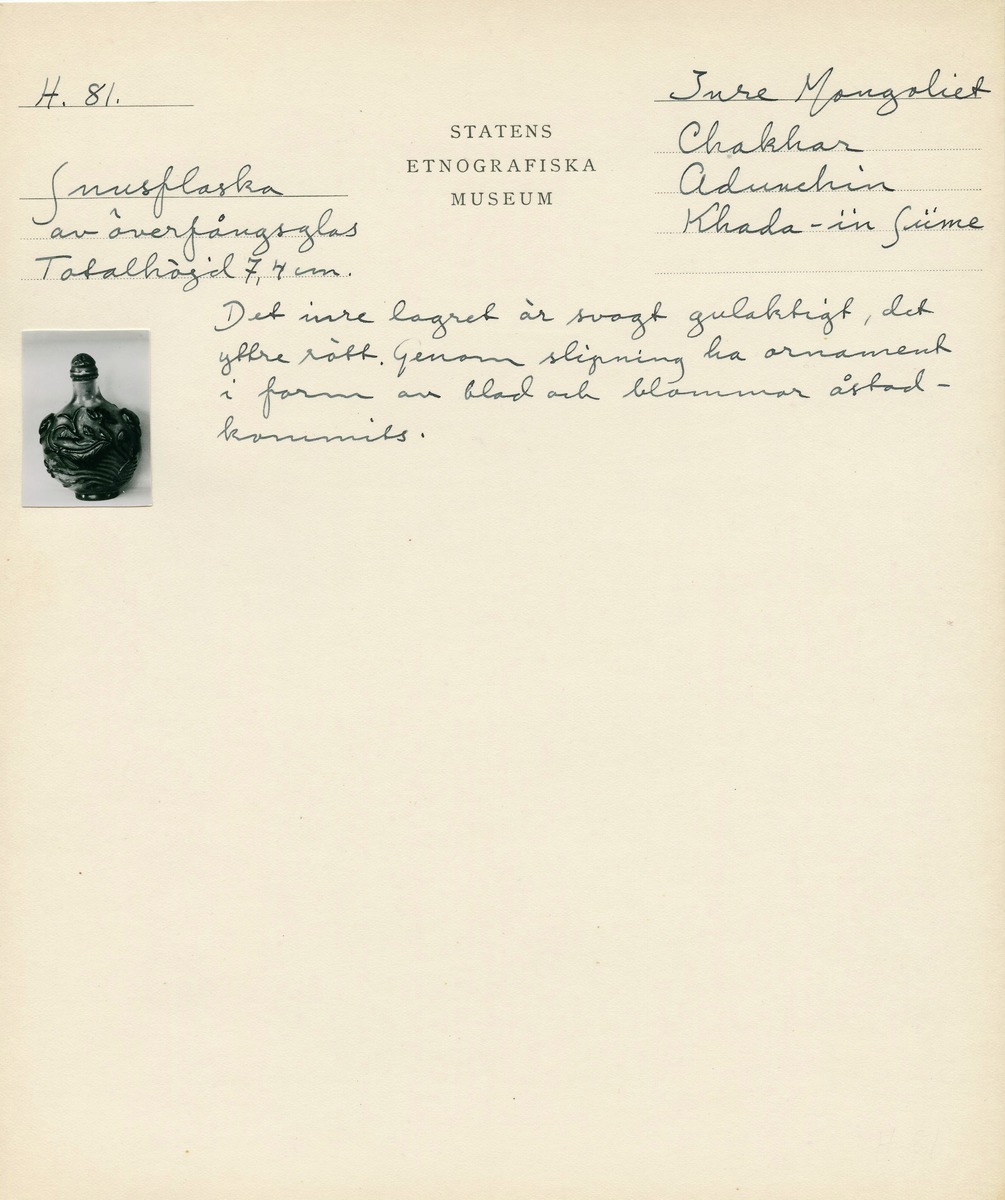 H. 81.
Snusflaska
av överfångsglas
Totalhöjd 7,4 cm.
STATENS
ETNOGRAFISKA
MUSEUM
Inre Mongoliet
Chakhar
Adunchin
Khada-ïn Süme
Det inre lagret är svagt gulaktigt, det
yttre rött. Genom slipning ha ornament
i form av blad och blommor åstad-
kommits.